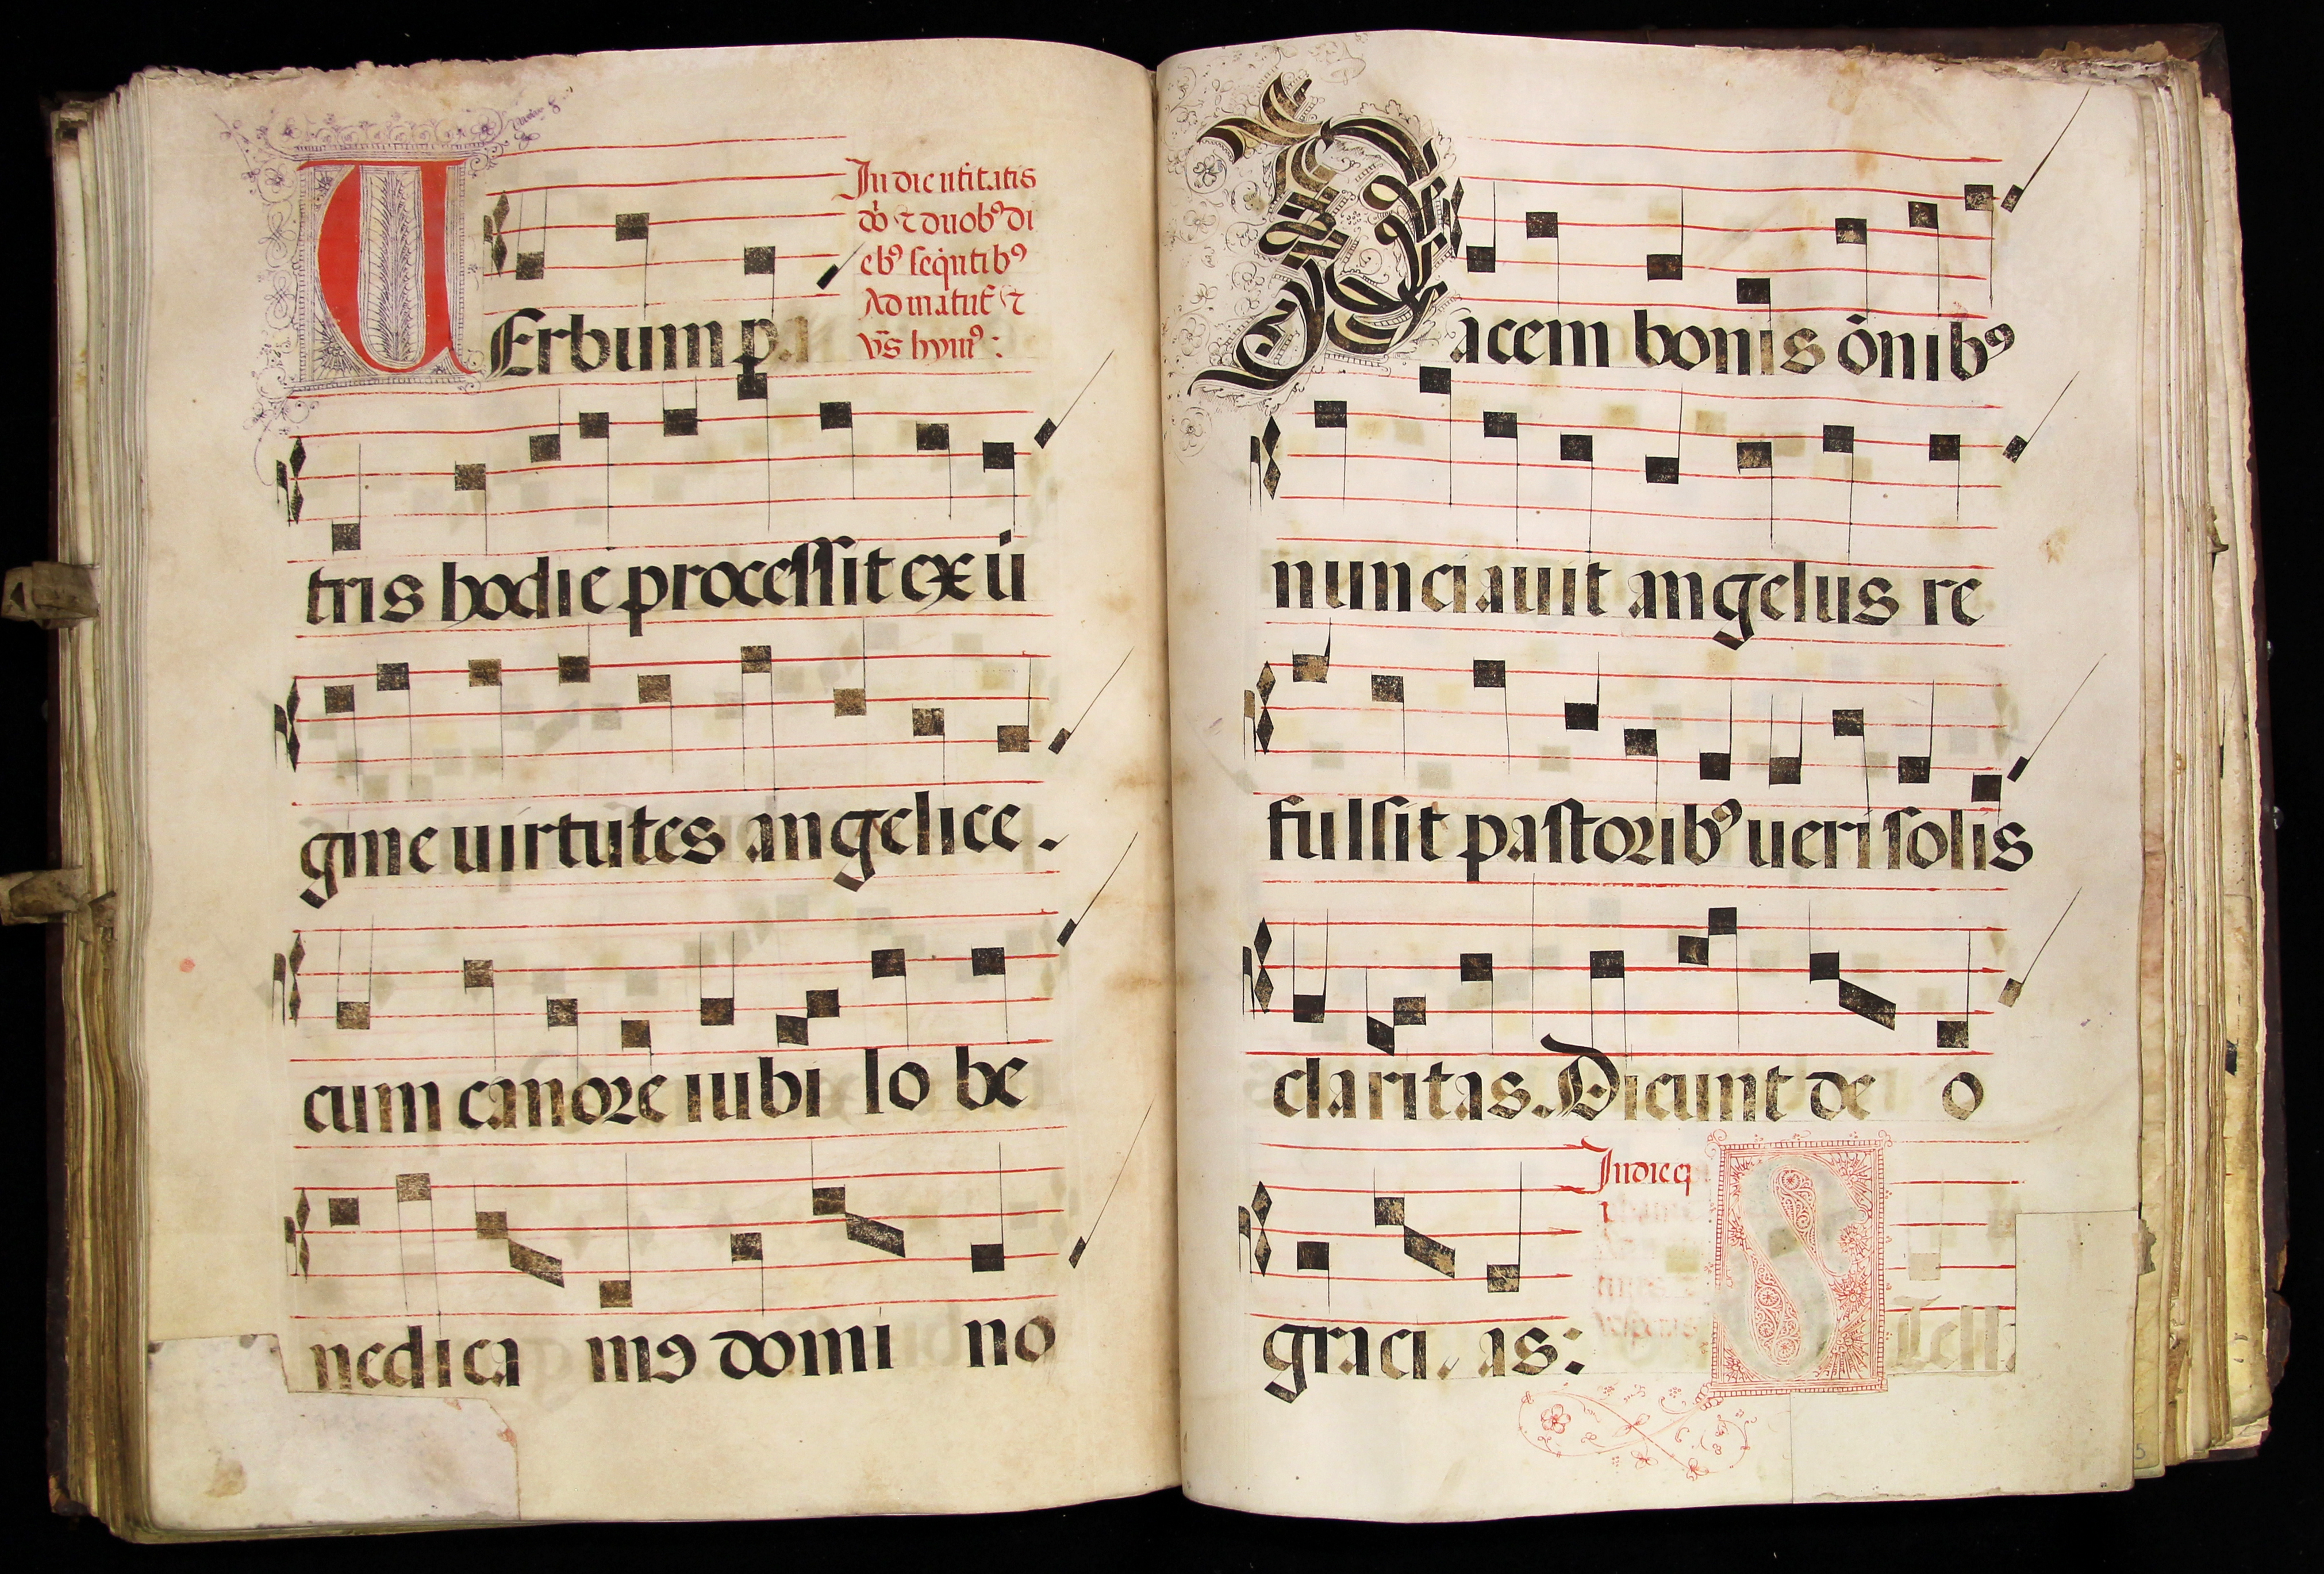 In die nr̄itatis
dō ⁊ duobꝰ di
ebꝰ seq̄ntibꝰ
Ad matut̄ ⁊
vr̄s hymꝰ:
VErbum pa
tris hodie processit ex ui
gine uirtutes angelice.
cum canore iubi lo be
nedica mꝰ domi no
Pacem bonis ōnibꝰ
nunciauit angelus re
fulsit pastoribꝰ ueri solis
claritas. Dicunt de o
graci as:
In die
S Tell